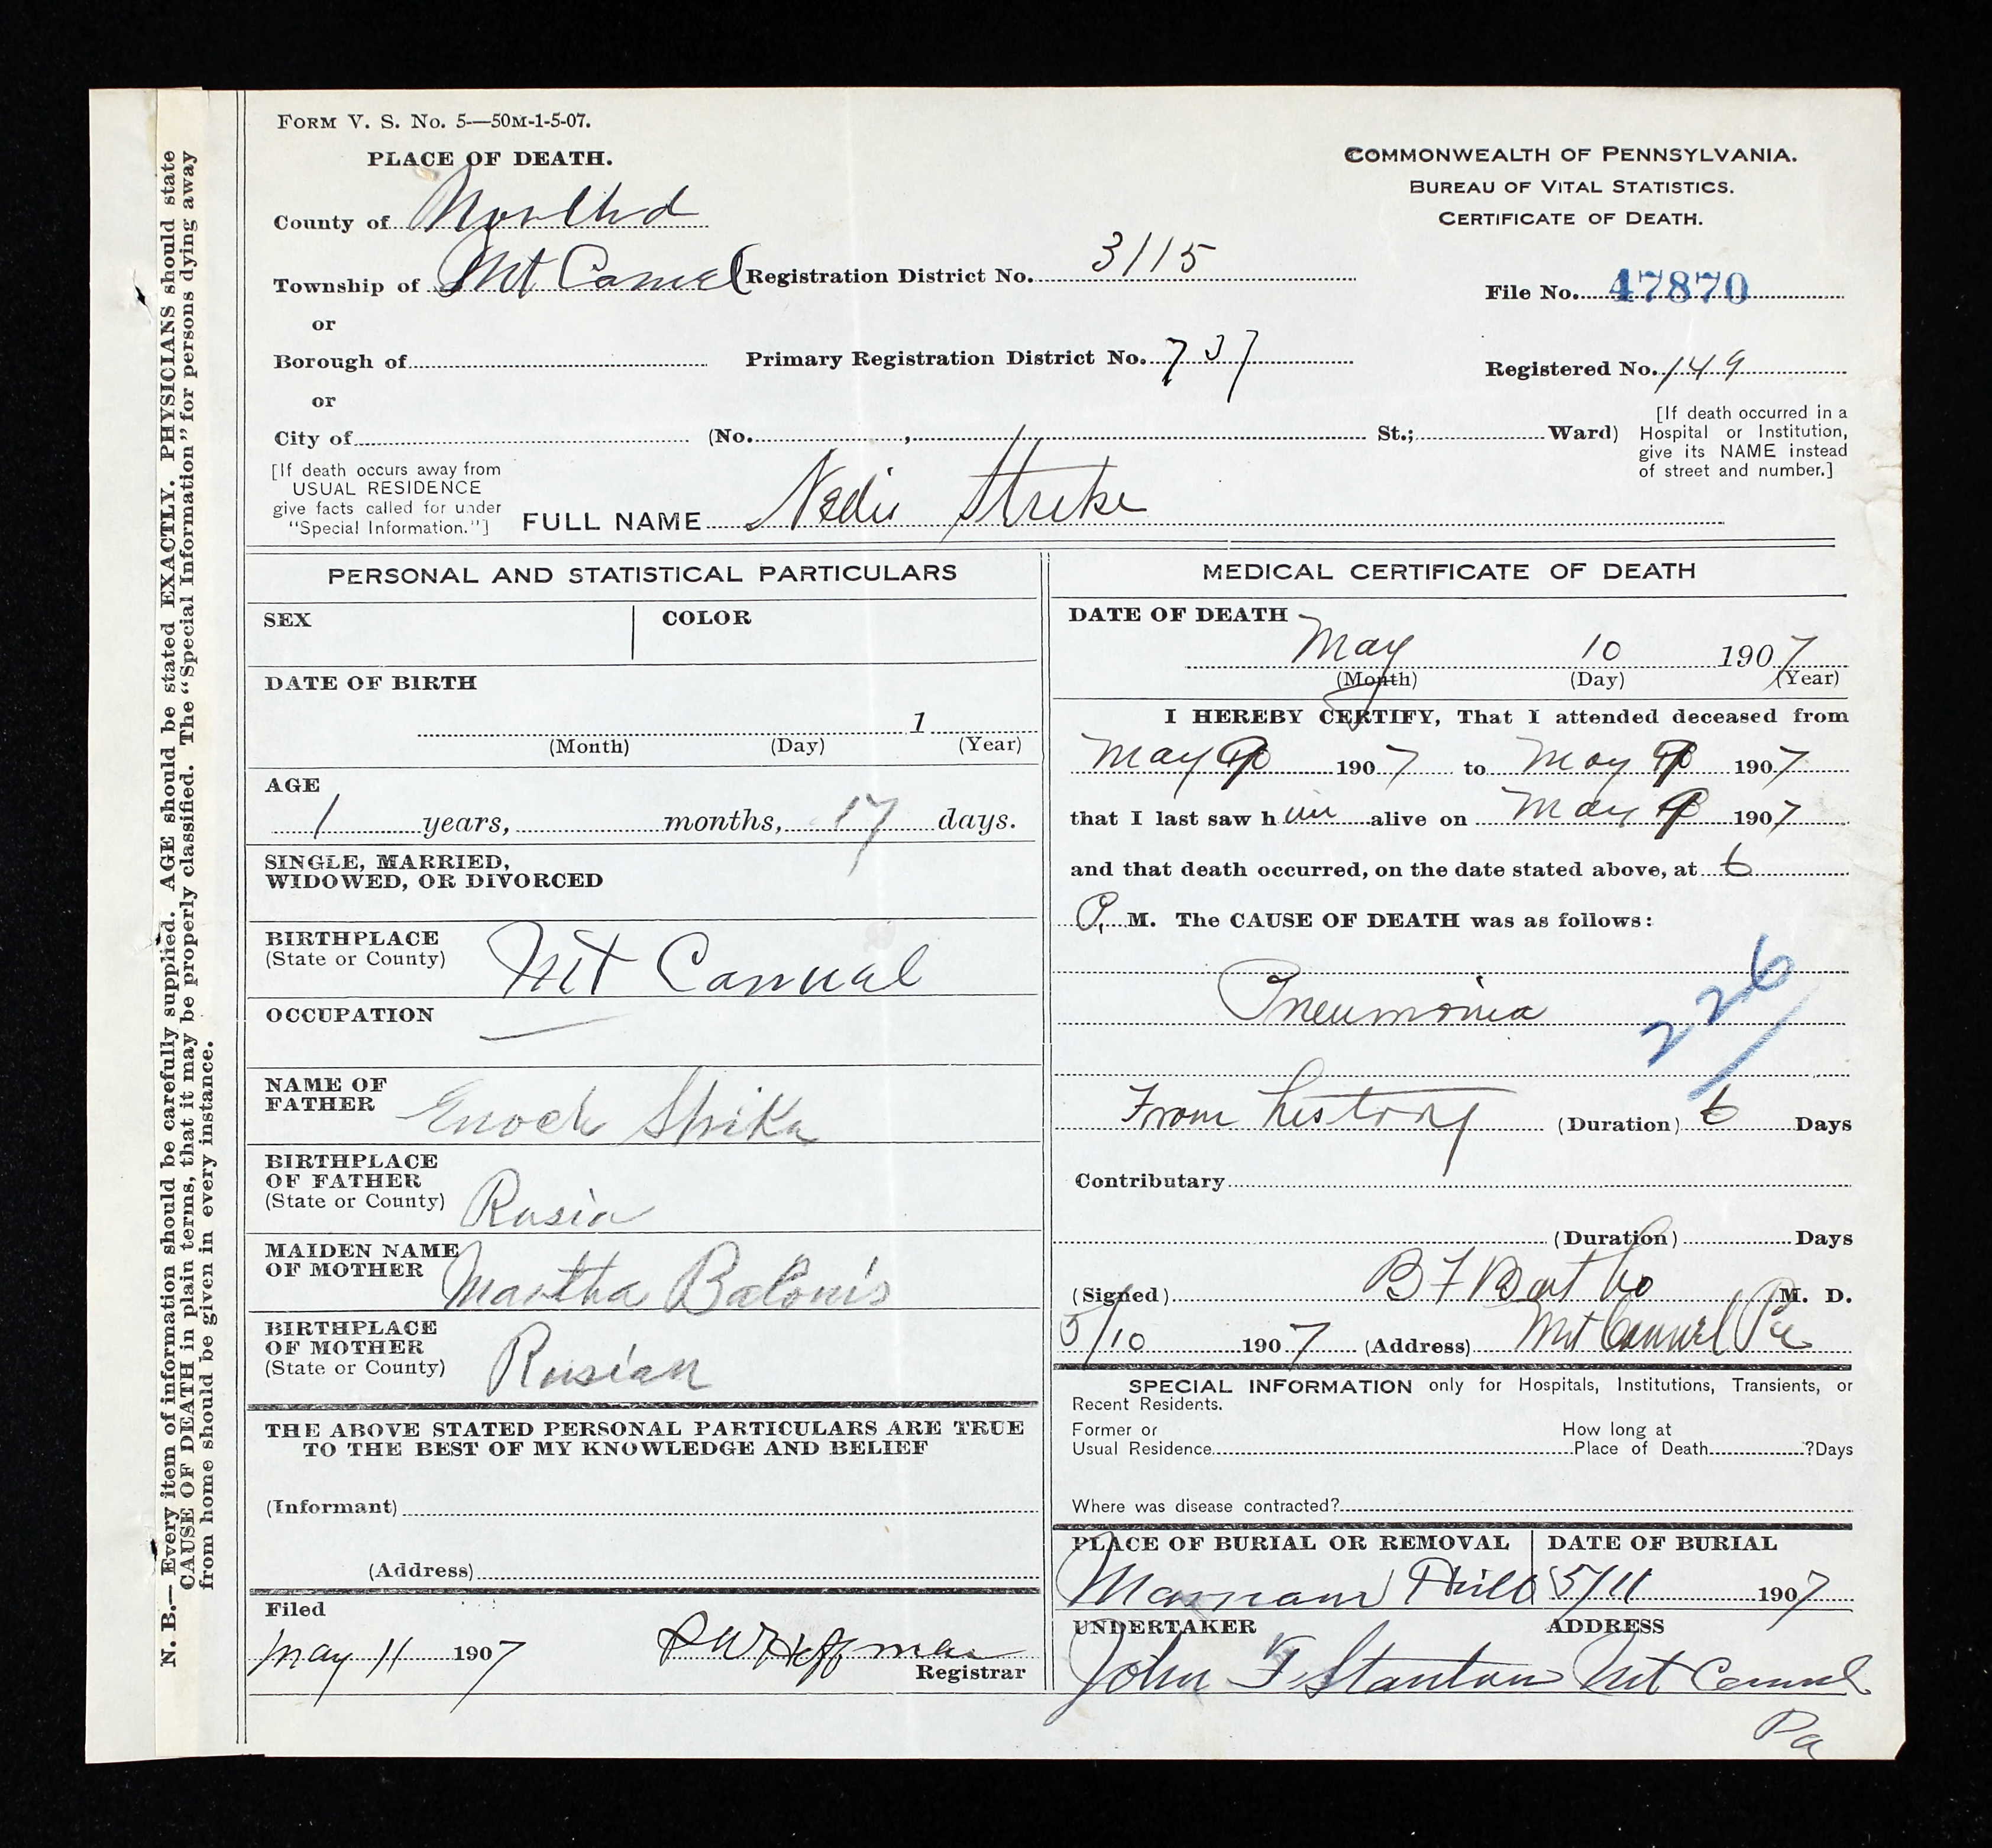 FORM V. S. No. 5—50M-1-5-07.
PLACE OF DEATH.
County of Northd
Township of Mt Camel
or
Borough of
or
City of
(No. , St.; Ward)
Registration District No. 3115
Primary Registration District No. 737
COMMONWEALTH OF PENNSYLVANIA.
BUREAU OF VITAL STATISTICS.
CERTIFICATE OF DEATH.
File No. 47870
Registered No. 149
[If death occurred in a
Hospital or Institution,
give its NAME instead
of street and number.]
[If death occurs away from
USUAL RESIDENCE
give facts called for under
"Special Information."]
FULL NAME Strike
PERSONAL AND STATISTICAL PARTICULARS
SEX
COLOR
DATE OF BIRTH
1
(Month) (Day) (Year)
AGE
1 years, months, 17 days.
SINGLE, MARRIED,
WIDOWED, OR DIVORCED
BIRTHPLACE
(State or County)
Mt
OCCUPATION
NAME OF
FATHER
Enoch
BIRTHPLACE
OF FATHER
(State or County)
Rusia
MAIDEN NAME
OF MOTHER
Martha
BIRTHPLACE
OF MOTHER
(State or County)
Rusian
THE ABOVE STATED PERSONAL PARTICULARS ARE TRUE
TO THE BEST OF MY KNOWLEDGE AND BELIEF
(Informant)
(Address)
Filed
May 11 1907
Registrar
MEDICAL CERTIFICATE OF DEATH
DATE OF DEATH
May 10 1907
(Month) (Day) (Year)
I HEREBY CERTIFY, That I attended deceased from
May 1907 to May 1907
that I last saw him alive on May 1907
and that death occurred, on the date stated above, at 6
P. M. The CAUSE OF DEATH was as follows:
Pneumonia
226
From history (Duration) 6 Days
Contributary
(Duration) Days
(Signed) B F M. D.
5/10 1907 (Address) Mt Pa
SPECIAL INFORMATION only for Hospitals, Institutions, Transients, or
Recent Residents.
Former or
Usual Residence
How long at
Place of Death ?Days
Where was disease contracted?
PLACE OF BURIAL OR REMOVAL
DATE OF BURIAL
5/11 1907
UNDERTAKER
ADDRESS
John F Stanton Mt
Pa
N. B.—Every item of information should be carefully supplied. AGE should be stated EXACTLY. PHYSICIANS should state
CAUSE OF DEATH in plain terms, that it may be properly classified. The "Special Information" for persons dying away
from home should be given in every instance.